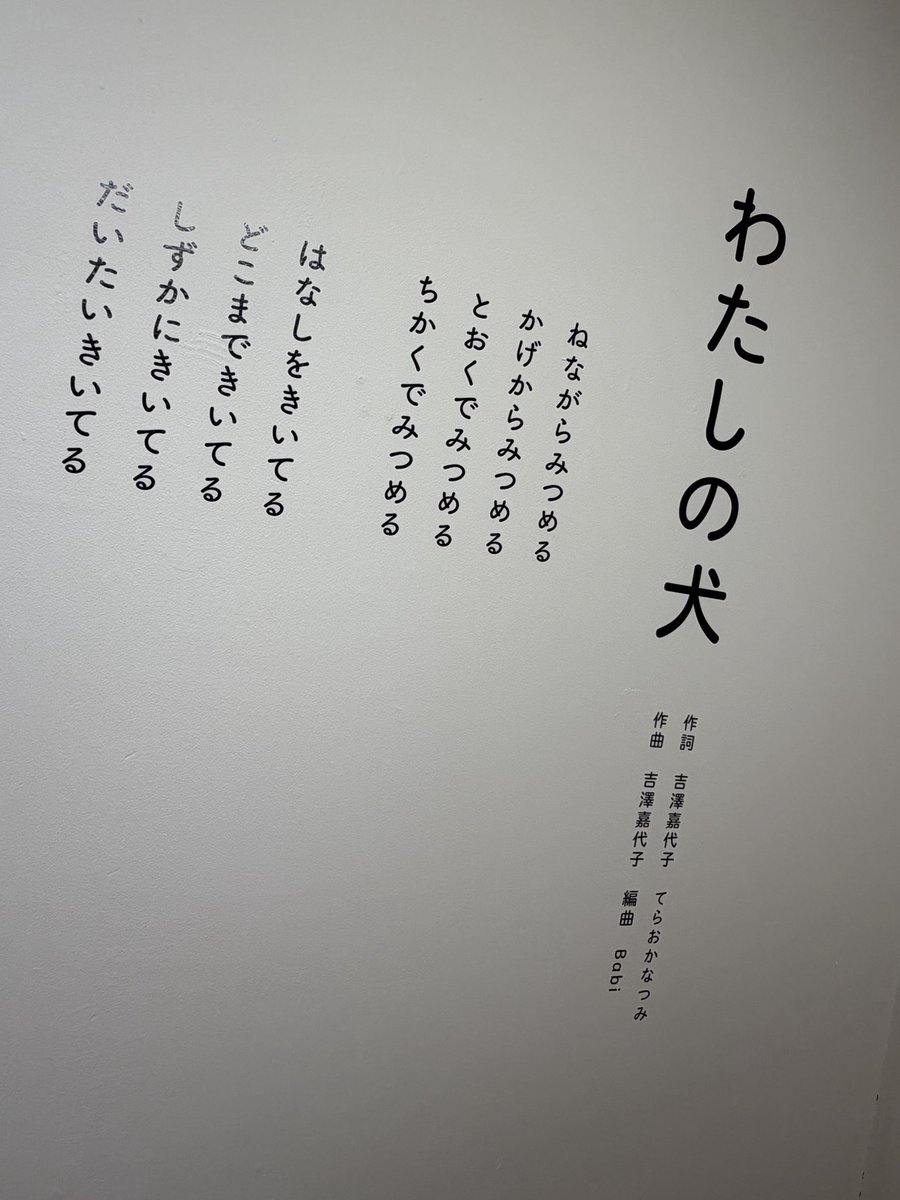 わたしの犬
作詞 吉澤嘉代子 てらおかなつみ
作曲 吉澤嘉代子 編曲 Babi
ねながらみつめる
かげからみつめる
とおくでみつめる
ちかくでみつめる
はなしをきいてる
どこまできいてる
しずかにきいてる
だいたいきいてる